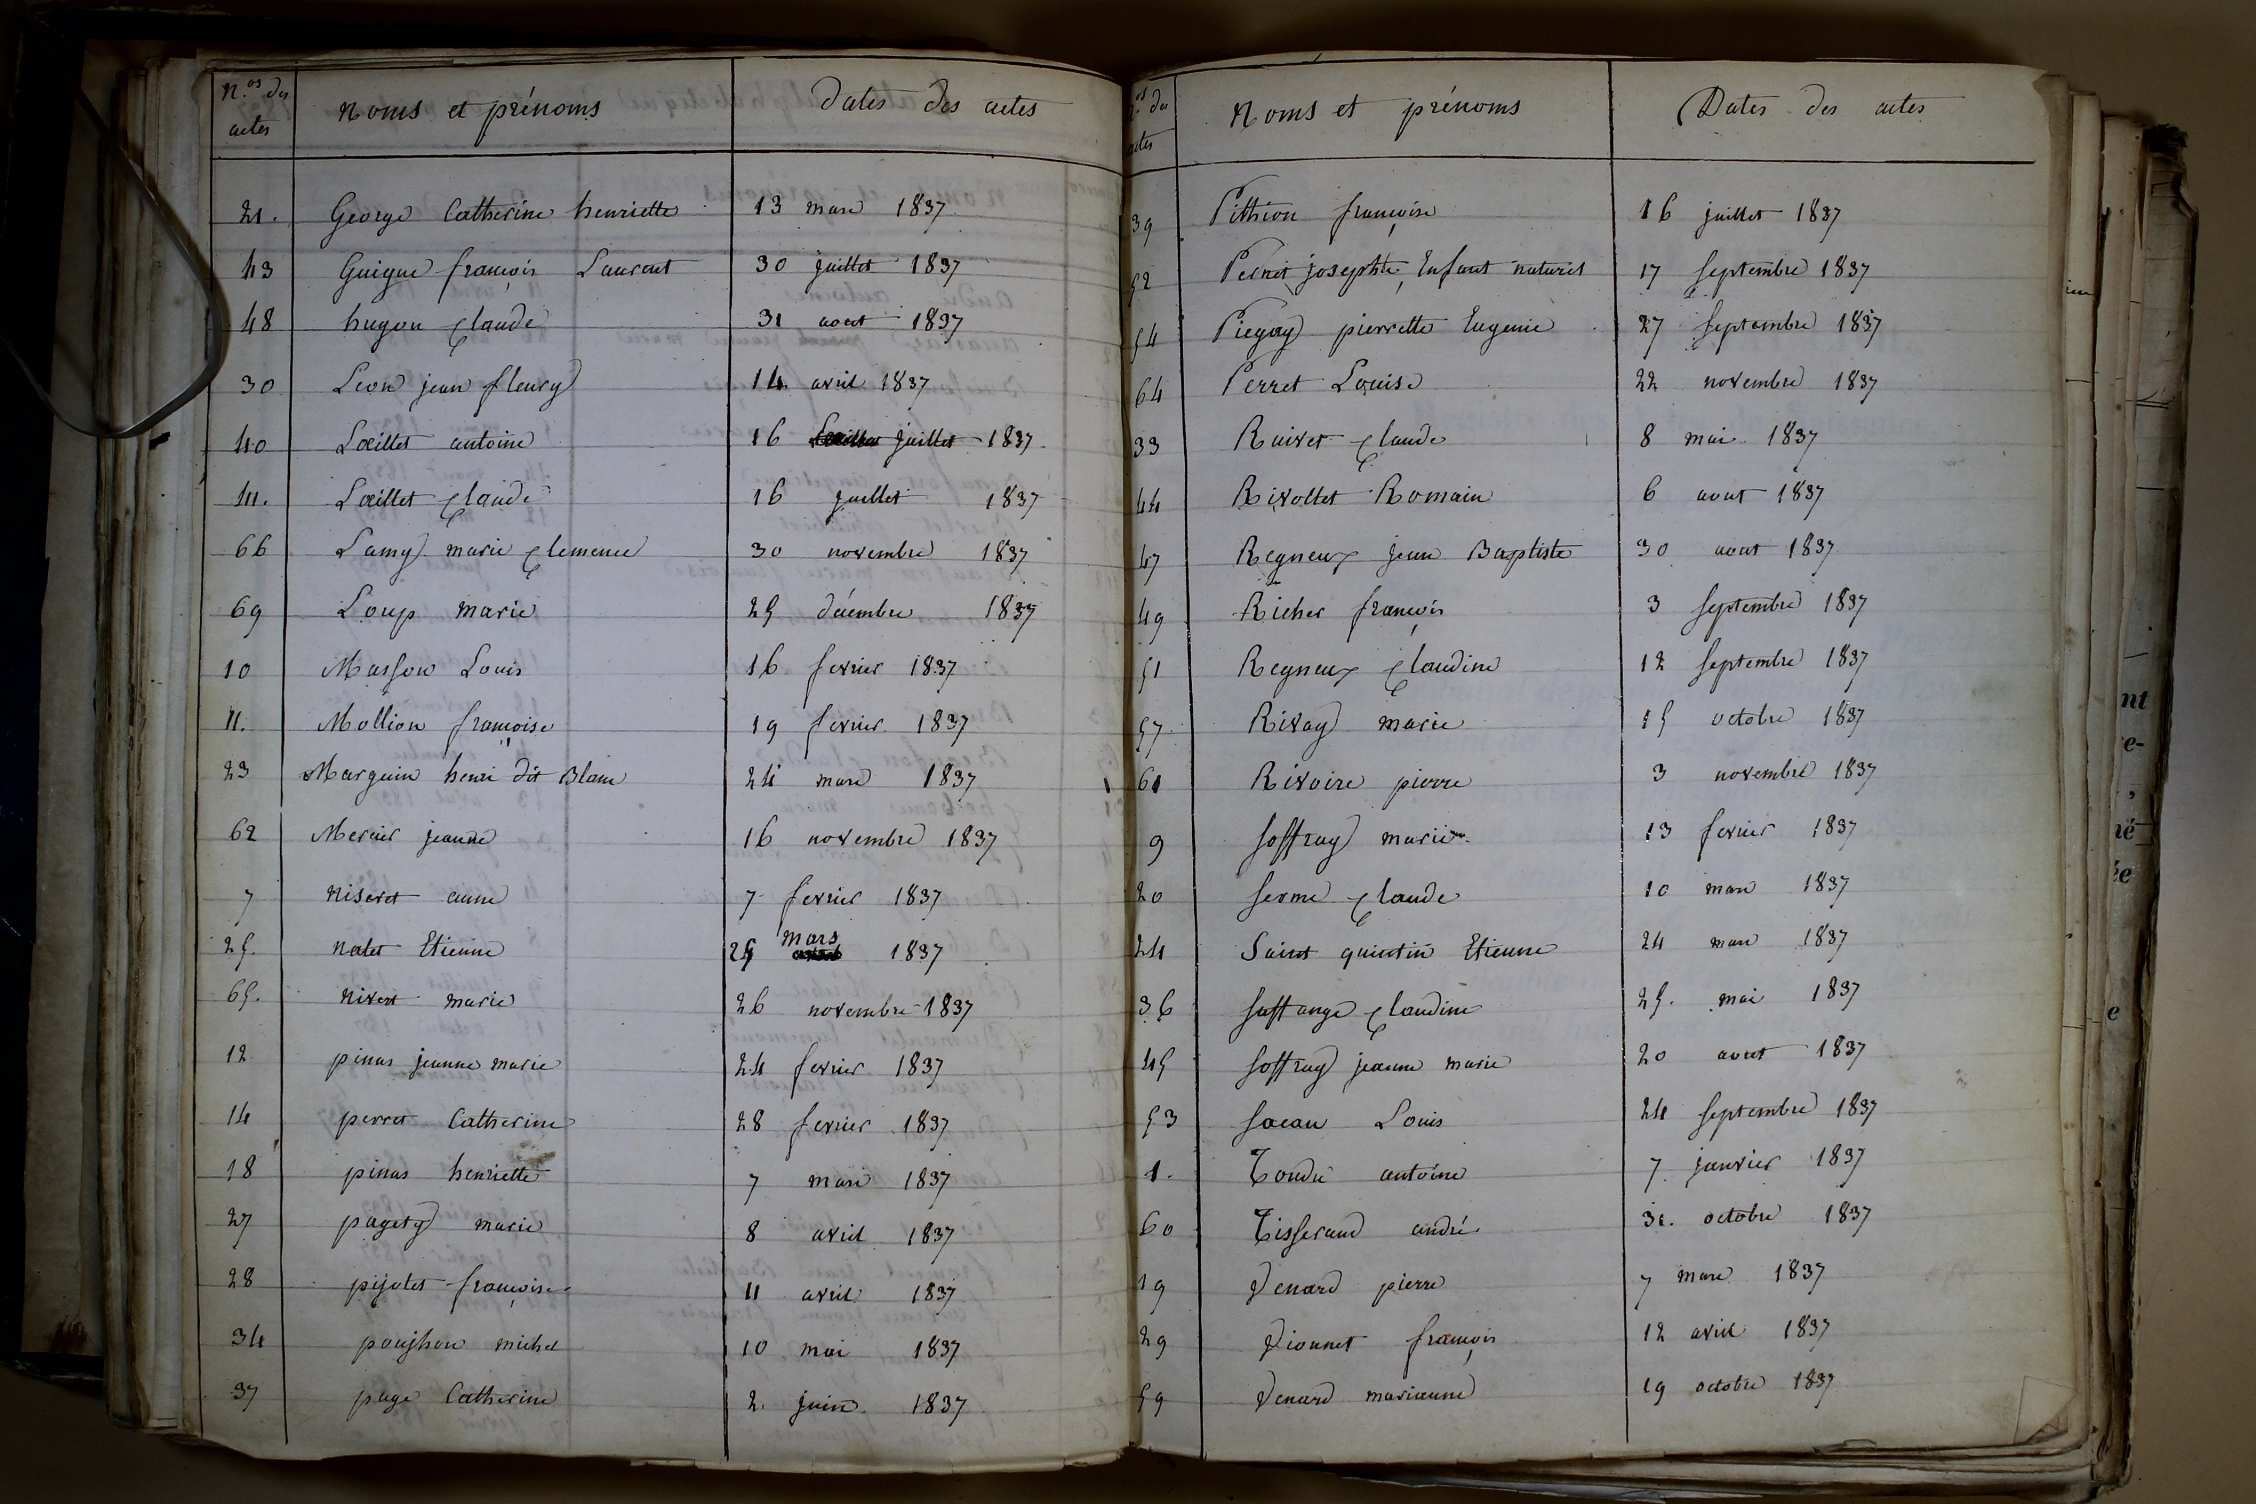 N.os des actes Noms et prénoms Dates des actes
21. George Catherine henriette 13 mars 1837
43 Guigue françois Laurent 30 juillet 1837
48 hugon Claude 31 aout 1837
30 Leon jean fleury 14 avril 1837
40 Lœillet antoine 16 juillet 1837
41. Lœillet Claude 16 juillet 1837
66 Lamy marie Clemence 30 novembre 1837
69 Loup marie 25 décembre 1837
10 Masson Louis 16 fevrier 1837
11. Mollion françoise 19 fevrier 1837
23 Marguin henri dit Blanc 24 mars 1837
62 Mercier jeanne 16 novembre 1837
7 Niseret anne 7 fevrier 1837
25. Natet Etienne 25 mars 1837
65. Nivert marie 26 novembre 1837
12 pinas jeanne marie 24 fevrier 1837
14 perret Catherine 28 fevrier 1837
18 pinas henriette 7 mars 1837
27 pagety marie 8 avril 1837
28 pijolet françoise 11 avril 1837
34 michel 10 mai 1837
37 page Catherine 2 juin 1837
N.os des actes Noms et prénoms Dates des actes
39 Pithion françoise 16 juillet 1837
52 Pernet josephte, Enfant naturel 17 septembre 1837
54 Piegay pierrette Eugenie 27 septembre 1837
64 Perret Louise 22 novembre 1837
33 Ruivet Claude 8 mai 1837
44 Rivollet Romain 6 aout 1837
47 Regneux jean Baptiste 30 aout 1837
49 Richer françois 3 septembre 1837
51 Regneux Claudine 12 septembre 1837
57 Rivay marie 15 octobre 1837
61 Rivoire pierre 3 novembre 1837
9 Soffray marie 13 fevrier 1837
20 Serme Claude 10 mars 1837
24 Saint quintin Etienne 24 mars 1837
36 Saffange Claudine 25. mai 1837
45 Soffray jeanne marie 20 aout 1837
53 Louis 24 septembre 1837
1. Tondu antoine 7 janvier 1837
60 Tisserand andré 31. octobre 1837
19 Venard pierre 7 mars 1837
29 Vionnet françois 12 avril 1837
59 Venard marianne 19 octobre 1837